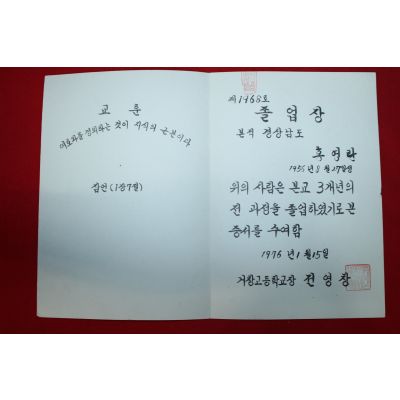 교훈
여호와를 경외하는 것이 지식의 근본이라
잠언(1장7절)
제1468호
졸업장
본적 경상남도
1956년 8월 27일생
위의 사람은 본교 3개년의
전 과정을 졸업하였기로 본
증서를 수여함
1976년 1월 15일
거창고등학교장 전영창